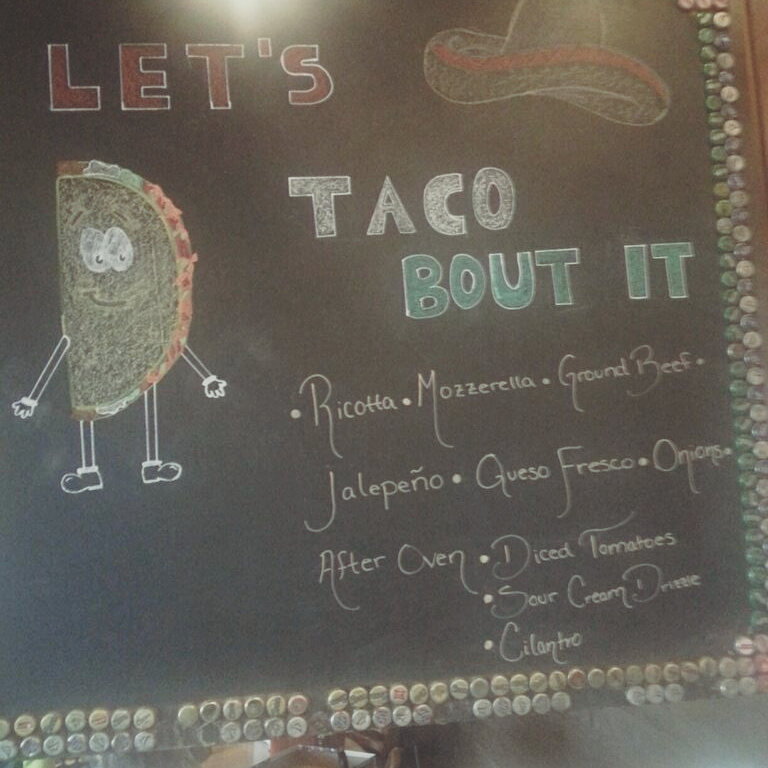 LET'S
TACO
BOUT IT
• Ricotta • Mozzerella • Ground Beef •
Jalepeño • Queso Fresco • Onions •
After Oven • Diced Tomatoes
• Sour Cream Drizzle
• Cilantro